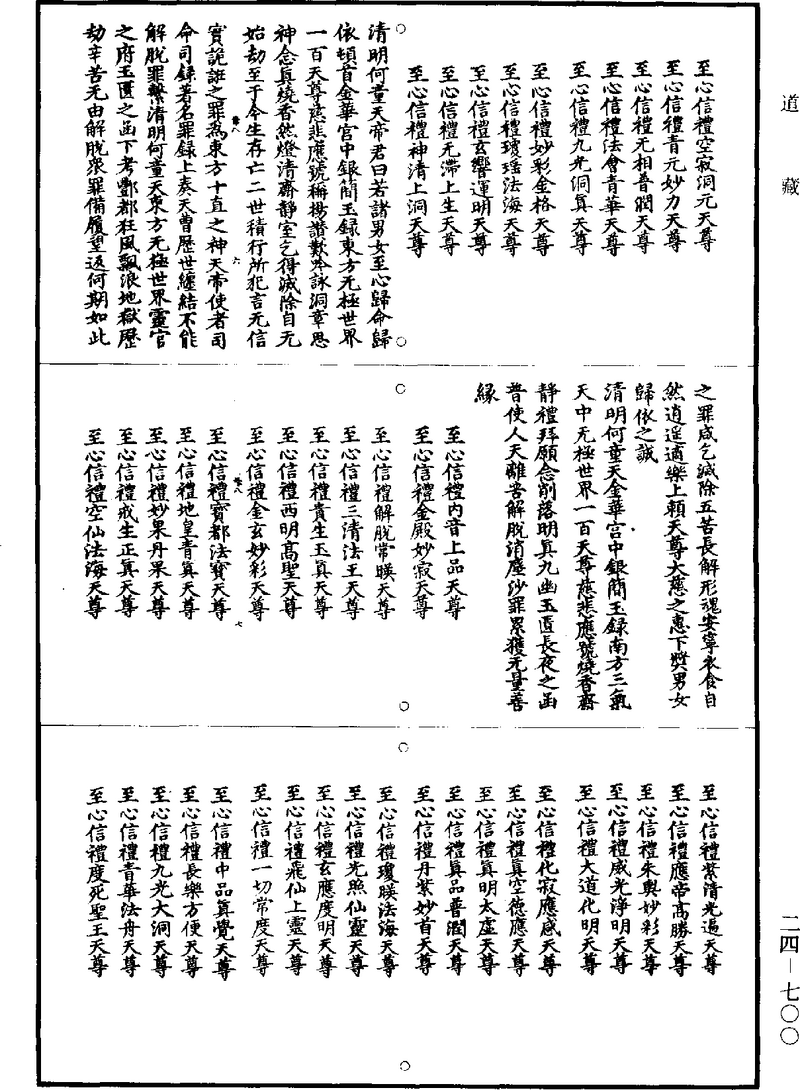 道藏
至心信禮空寂洞元天尊
至心信禮青元妙力天尊
至心信禮无相普潤天尊
至心信禮法會青華天尊
至心信禮九光洞真天尊
至心信禮妙彩金格天尊
至心信禮瓊瑶法海天尊
至心信禮玄響運明天尊
至心信禮无滯上生天尊
至心信禮神清上洞天尊
清明何童天帝君曰若諸男女至心歸命歸
依頓首金華宫中銀簡玉録東方无極世界
一百天尊慈悲應號稱揚讚歎吟詠洞章思
神念真燒香然燈清齋静室乞得滅除自无
始劫至于今生存亡二世積行所犯言无信
實詭誑之罪爲東方十直之神天帝使者司
命司録著名罪録上奏天曹歷世纏結不能
解脱罪繫清明何童天東方无極世界靈官
之府玉匱之函下考酆都狂風飄浪地獄歷
劫辛苦无由解脱衆罪備履望返何期如此
之罪咸乞滅除五苦長解形魂安寧衣食自
然逍遥適樂上賴天尊大慈之惠下奬男女
歸依之誠
清明何童天金華宫中銀簡玉録南方三氣
天中无極世界一百天尊慈悲應號燒香齋
静禮拜願念削落明真九幽玉匱長夜之函
普使人天離苦解脱消塵沙罪累獲无量善
緣
至心信禮内音上品天尊
至心信禮金殿妙寂天尊
至心信禮解脱常暎天尊
至心信禮三清法王天尊
至心信禮貴生玉真天尊
至心信禮西明高聖天尊
至心信禮金玄妙彩天尊
至心信禮寳都法寳天尊
至心信禮地皇青真天尊
至心信禮妙果丹果天尊
至心信禮戒生正真天尊
至心信禮空仙法海天尊
至心信禮紫清光遍天尊
至心信禮應帝高勝天尊
至心信禮朱輿妙彩天尊
至心信禮威光浄明天尊
至心信禮大道化明天尊
至心信禮化寂應感天尊
至心信禮真空德應天尊
至心信禮真明太虚天尊
至心信禮真品普潤天尊
至心信禮丹紫妙首天尊
至心信禮瓊暎法海天尊
至心信禮光照仙靈天尊
至心信禮玄應度明天尊
至心信禮飛仙上靈天尊
至心信禮一切常度天尊
至心信禮中品真覺天尊
至心信禮長樂方便天尊
至心信禮九光大洞天尊
至心信禮青華法舟天尊
至心信禮度死聖王天尊
二四－七〇〇